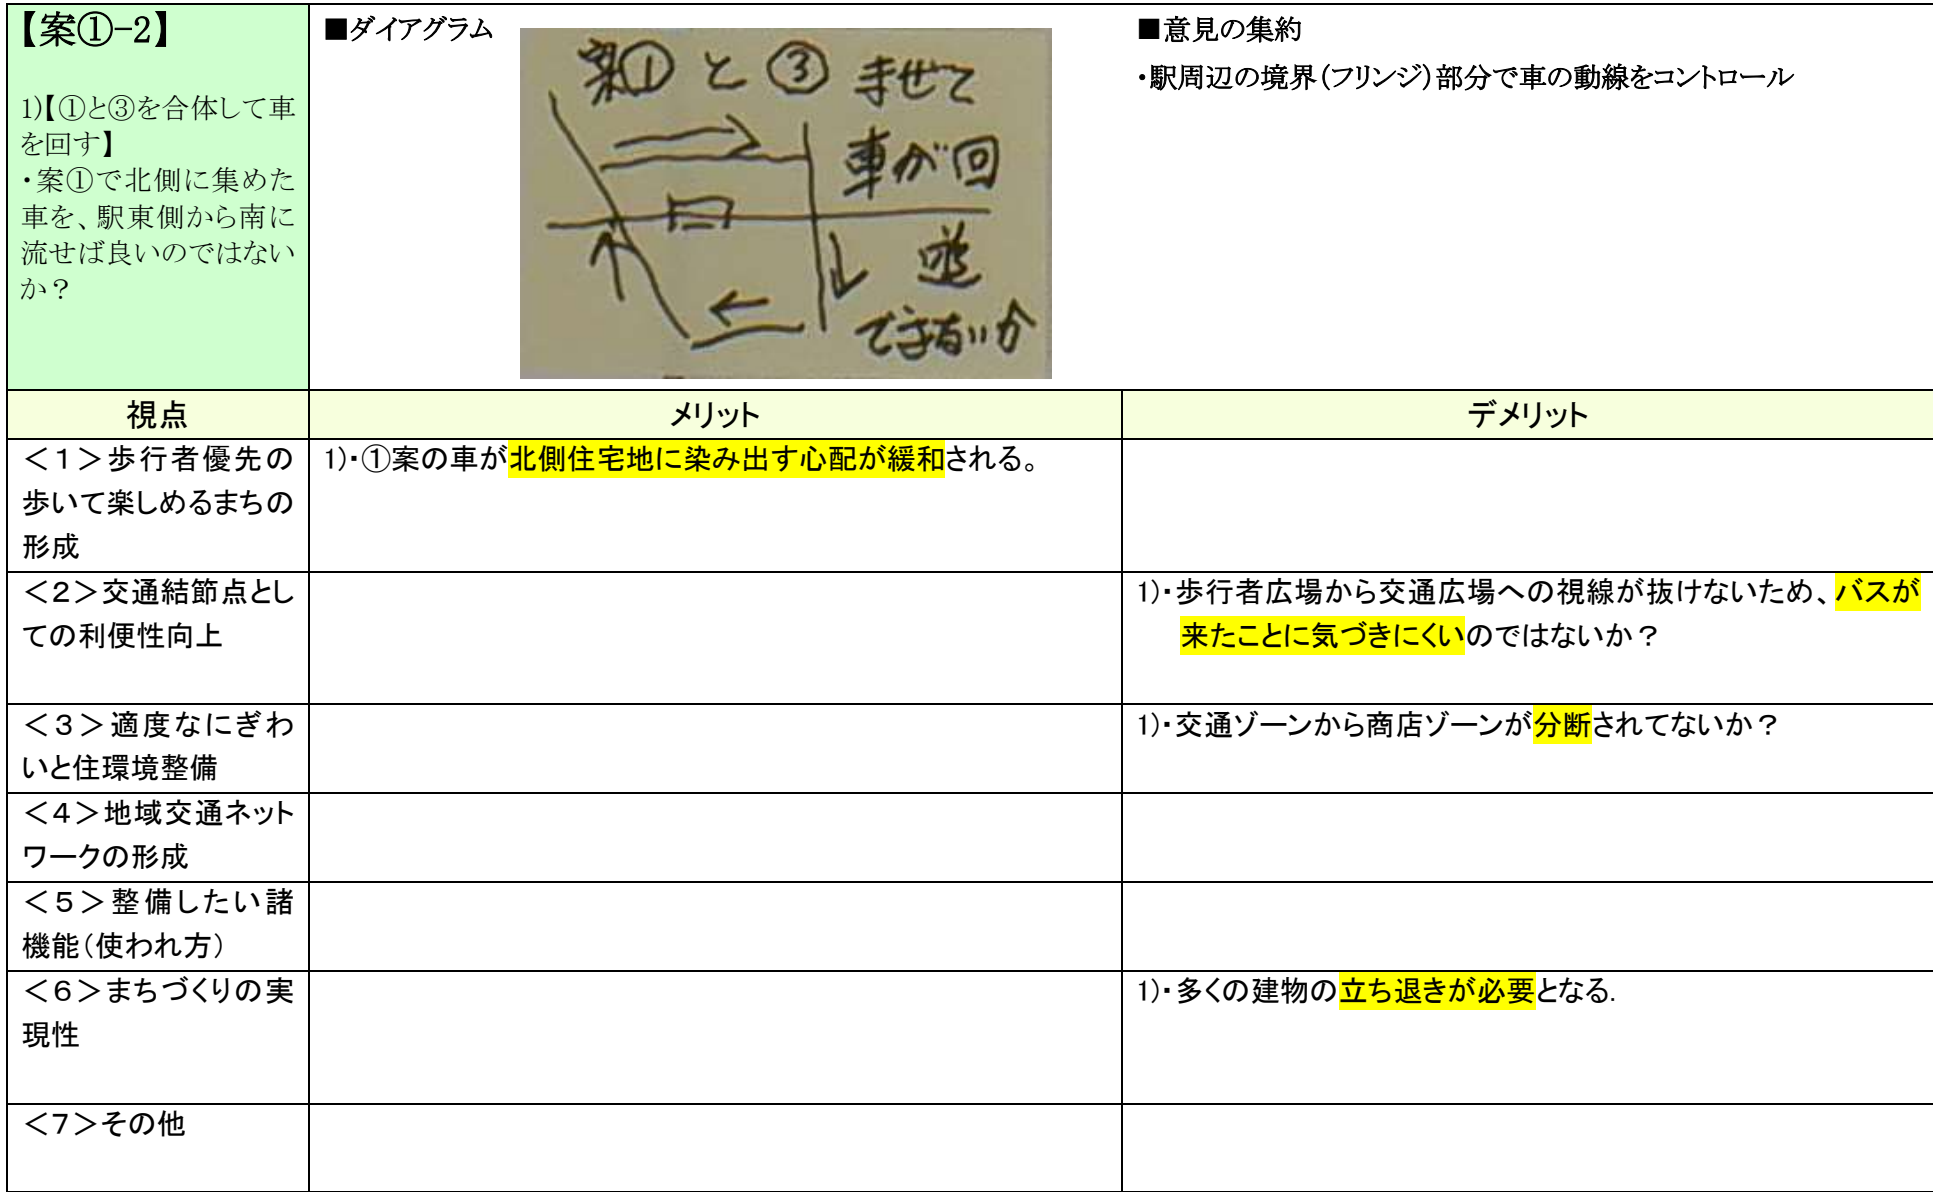 【案①-2】
1)【①と③を合体して車
を回す】
・案①で北側に集めた
車を、駅東側から南に
流せば良いのではない
か？
■ダイアグラム
案① と ③ ませて
車が回
できないか
■意見の集約
・駅周辺の境界(フリンジ)部分で車の動線をコントロール
視点
メリット
デメリット
＜１＞歩行者優先の
歩いて楽しめるまちの
形成
1)・①案の車が北側住宅地に染み出す心配が緩和される。
＜２＞交通結節点とし
ての利便性向上
1)・歩行者広場から交通広場への視線が抜けないため、バスが
来たことに気づきにくいのではないか？
＜３＞適度なにぎわ
いと住環境整備
1)・交通ゾーンから商店ゾーンが分断されてないか？
＜４＞地域交通ネット
ワークの形成
＜５＞整備したい諸
機能(使われ方)
＜６＞まちづくりの実
現性
1)・多くの建物の立ち退きが必要となる.
＜７＞その他